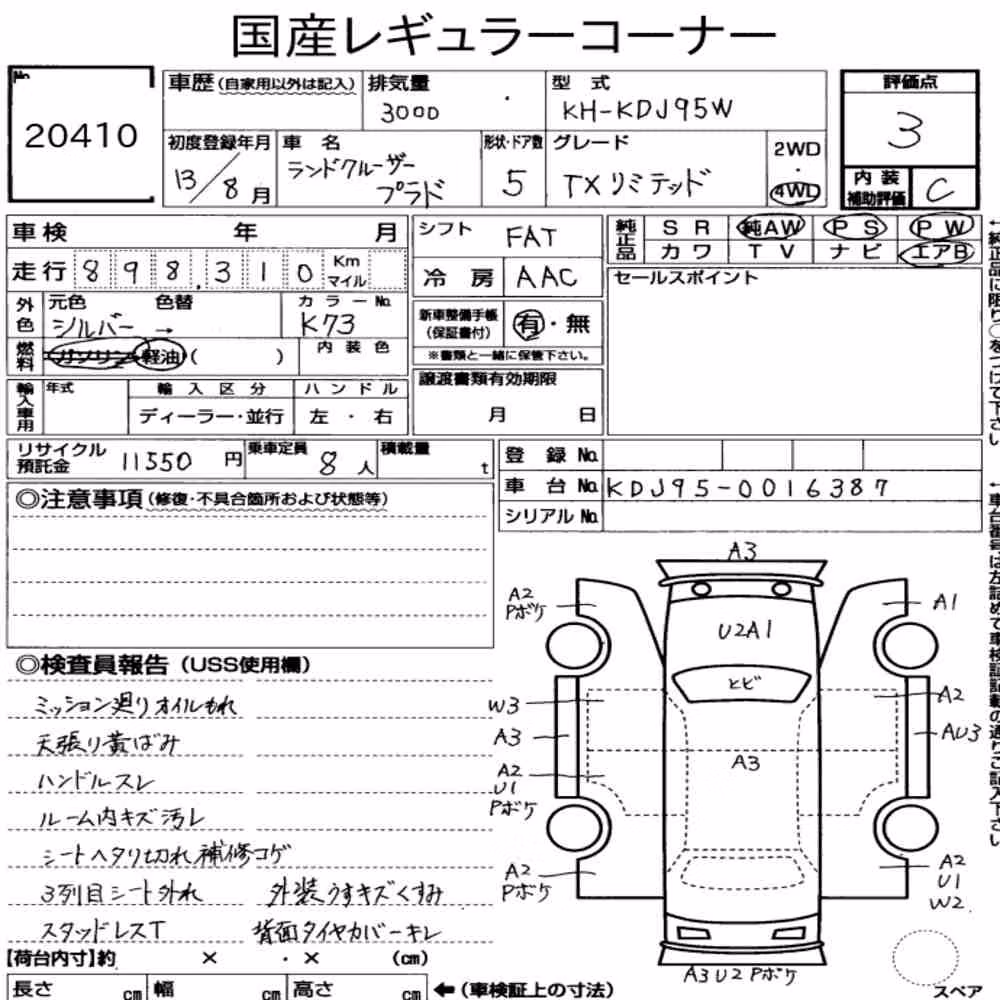 国産レギュラーコーナー
No.
20410
車歴(自家用以外は記入)
排気量
3000
型式
KH-KDJ95W
評価点
3
初度登録年月
13/8月
車名
ランドクルーザー
プラド
形状・ドア数
5
グレード
TXリミテッド
2WD
・
4WD
内装
補助評価
C
車検 年 月
シフト
FAT
純正品
SR 純AW PS PW
カワ TV ナビ エアB
走行 898,310 Km
マイル
冷房
AAC
セールスポイント
外色
元色 色替
シルバー →
カラーNo.
K73
新車整備手帳
(保証書付)
有・無
※書類と一緒に保管下さい。
燃料
ガソリン 軽油 ( )
内装色
譲渡書類有効期限
月 日
輸入車用
年式
輸入区分
ディーラー・並行
ハンドル
左・右
リサイクル
預託金
11550円
乗車定員
8人
積載量
t
登録No.
車台No.
KDJ95-0016387
シリアルNo.
←純正品に限り○をつけて下さい
←車台番号は左詰めで車検証記載の通りご記入下さい
◎注意事項(修復・不具合箇所および状態等)
◎検査員報告(USS使用欄)
ミッション廻りオイルもれ
天張り黄ばみ
ハンドルスレ
ルーム内キズ汚レ
シートヘタリ切れ補修コゲ
3列目シート外れ 外装うすキズくすみ
スタッドレスT 背面タイヤカバーキレ
A3
A2
Pボケ
A1
U2A1
ヒビ
W3
A2
A3
AU3
A3
A2
U1
Pボケ
A2
Pボケ
A2
U1
W2
A3U2Pボケ
スペア
【荷台内寸】約 × ・ × (cm)
長さ cm 幅 cm 高さ cm ←(車検証上の寸法)